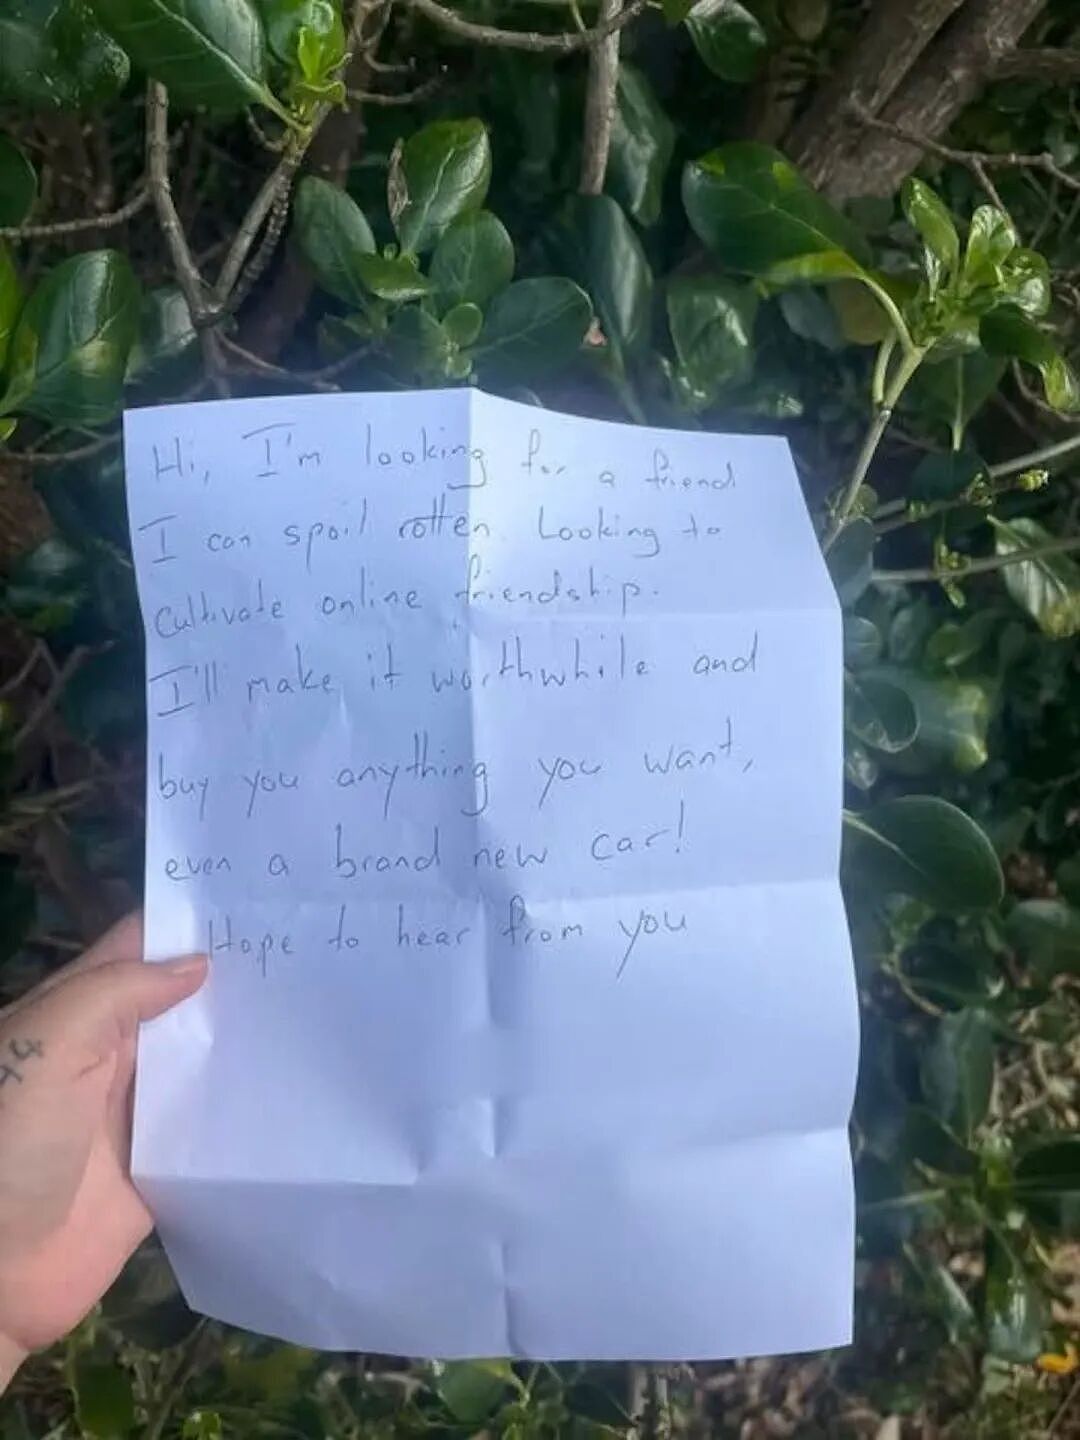 Hi, I'm looking for a friend
I can spoil rotten. Looking to
cultivate online friendship.
I'll make it worthwhile and
buy you anything you want,
even a brand new car!
Hope to hear from you
44